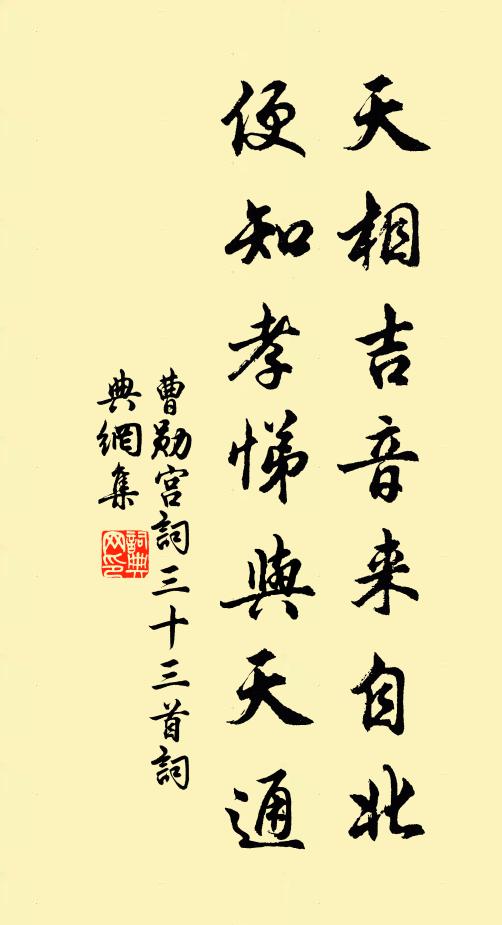 天相吉音来自北
便知孝悌與天通
曹勛宫詞三十三首詞
典網集
詞典
网印